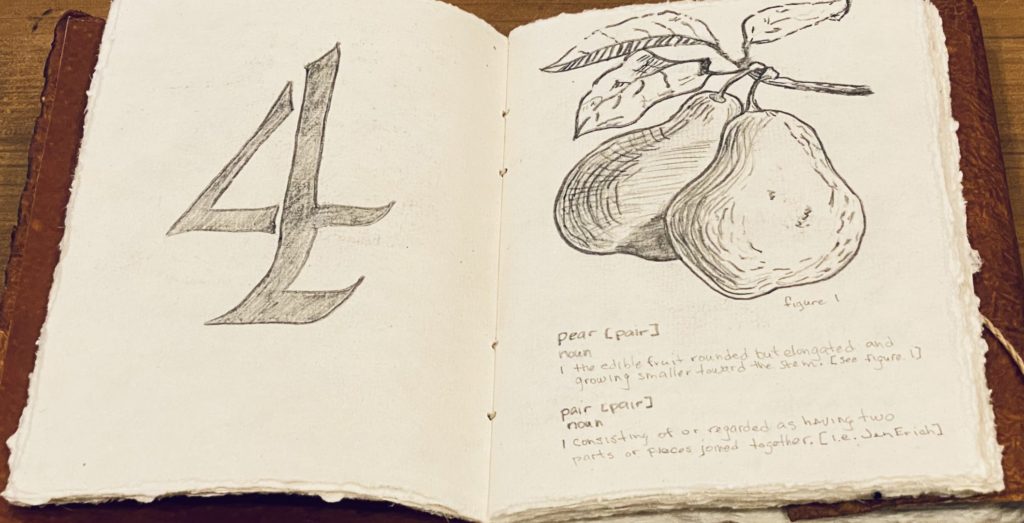 4
figure 1
pear [pair]
noun
1 the edible fruit rounded but elongated and
growing smaller toward the stem. [see figure. 1]
pair [pair]
noun
1 consisting of or regarded as having two
parts or pieces joined together. [i.e. JenErich]